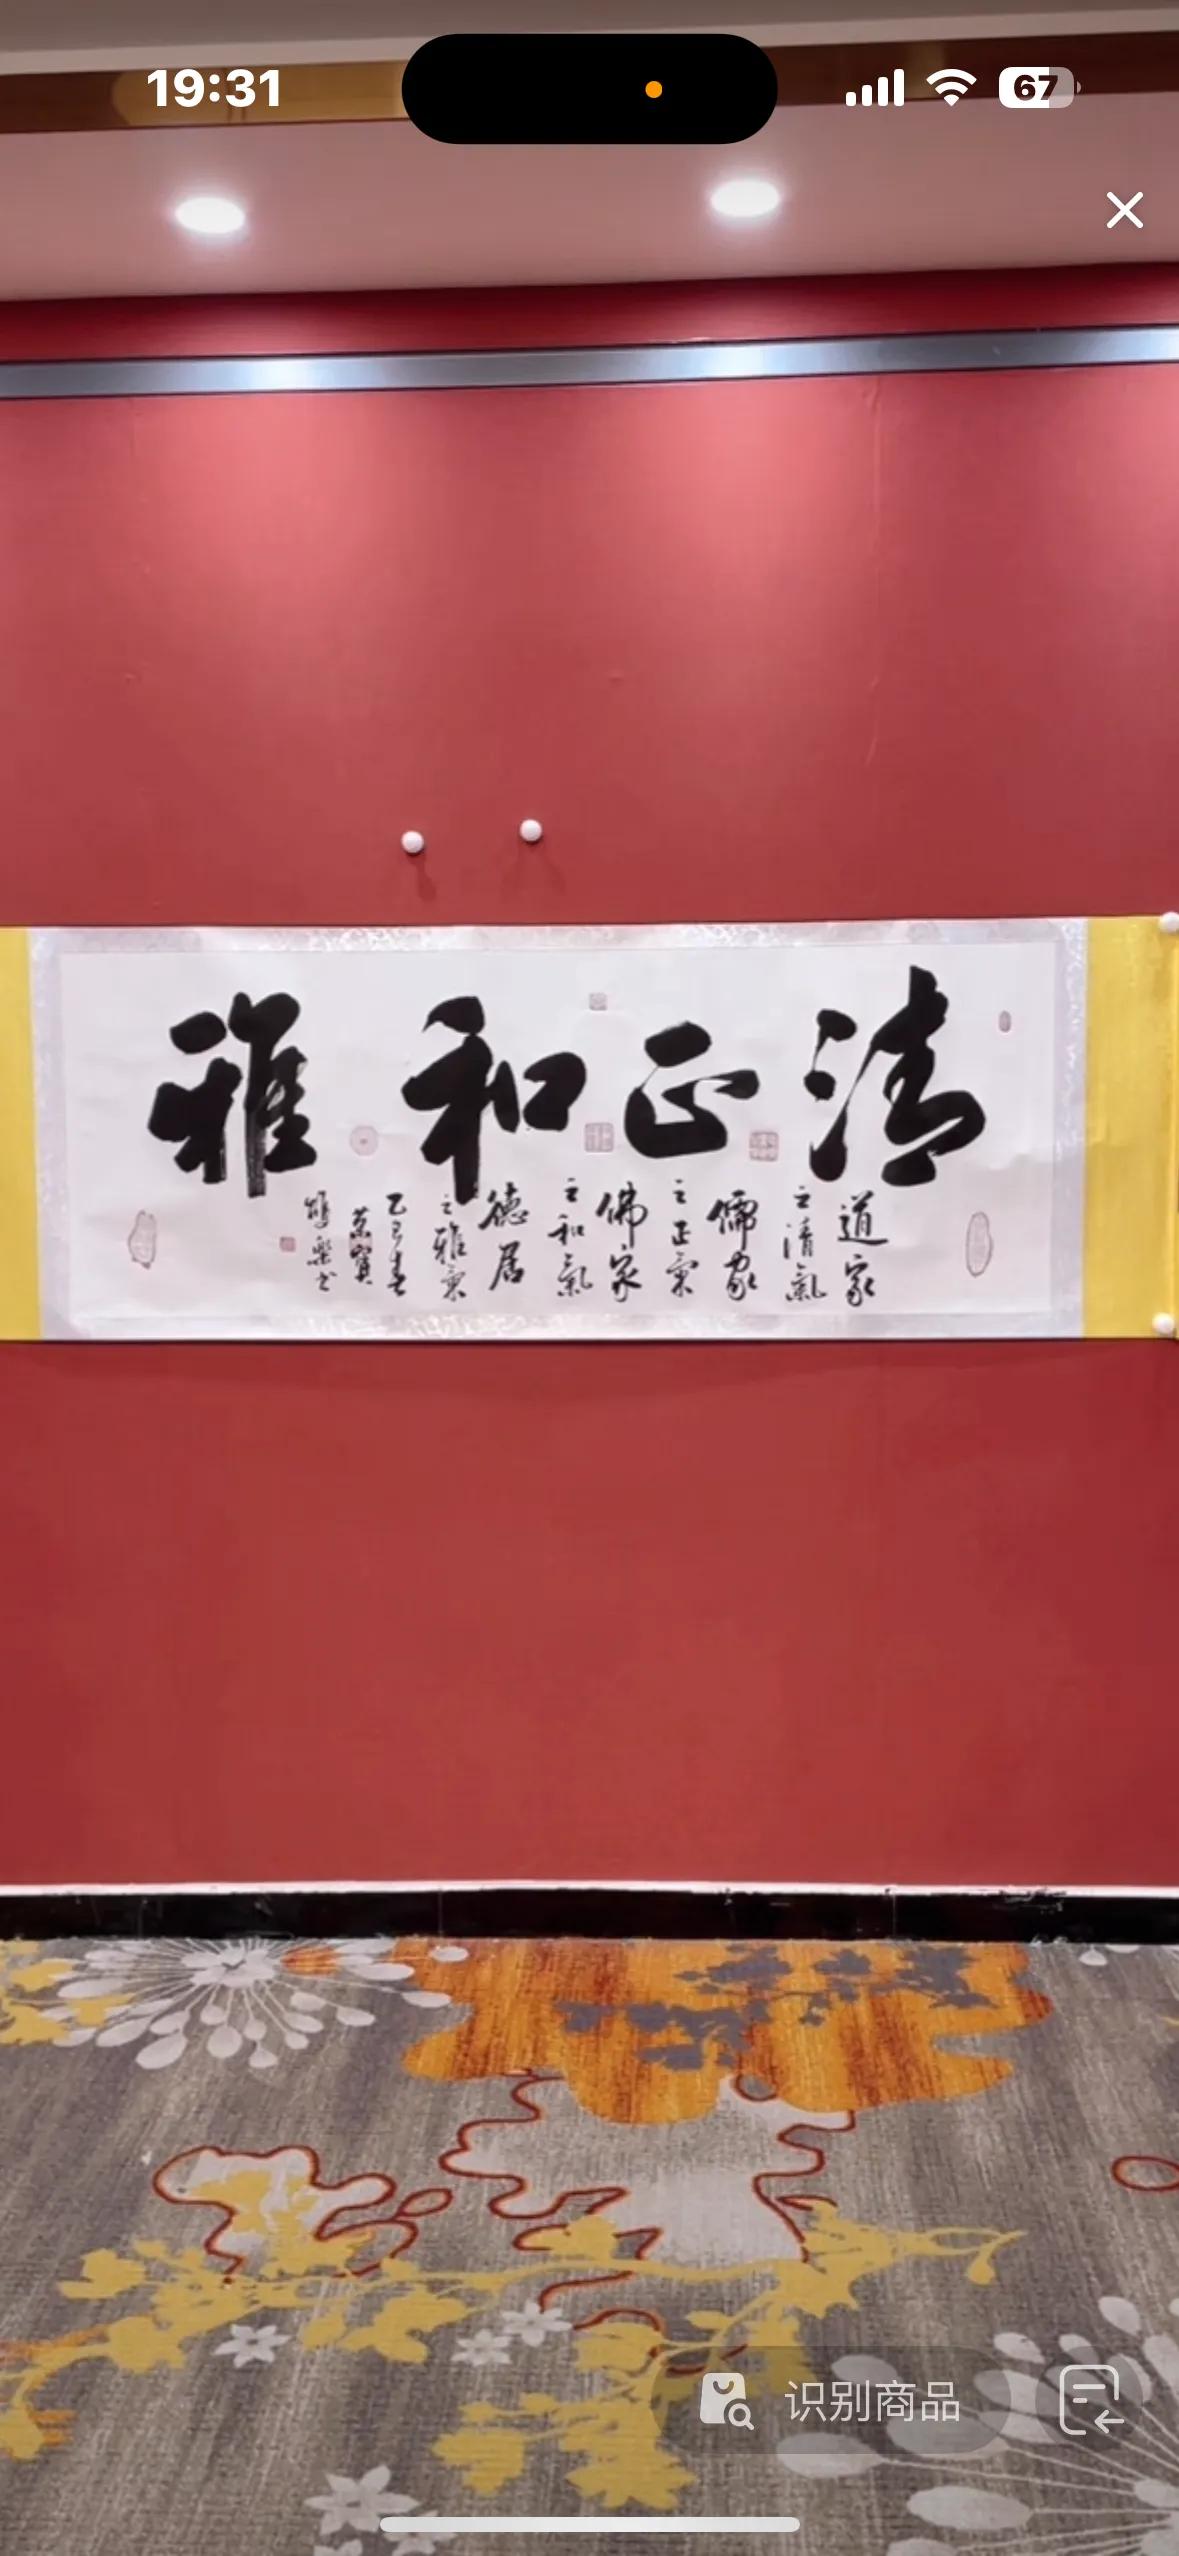 19:31
67
清正和雅
道家
之清氣
儒家
之正氣
佛家
之和氣
德居
之雅氣
乙巳春
识别商品